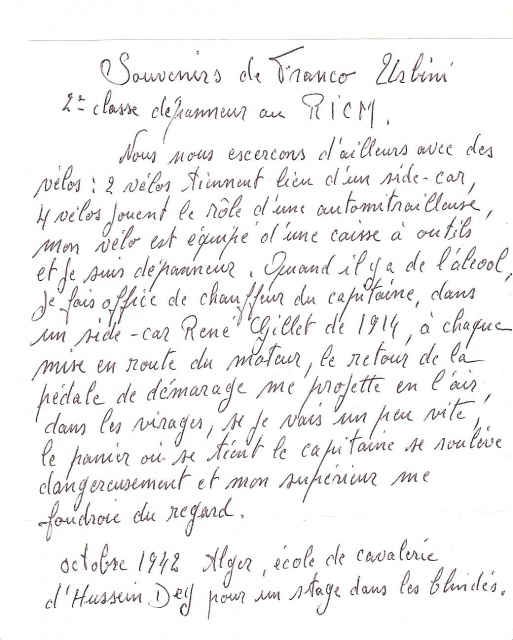 Souvenirs de Franco Urbini
2e classe dépanneur au RICM.
Nous nous escercons d'ailleurs avec des
vélos : 2 vélos tiennent lieu d'un side-car,
4 vélos jouent le rôle d'une automitrailleuse,
mon vélo est équipé d'une caisse à outils
et je suis dépanneur. Quand il y a de l'álcool,
je fais office de chauffeur du capitaine, dans
un side-car René Gillet de 1914, à chaque
mise en route du moteur, le retour de la
pédale de démarage me projette en l'air,
dans les virages, se je vais un peu vite,
le panier où se tient le capitaine se soulève
dangereusement et mon supérieur me
foudroie du regard.
octobre 1942 Alger, école de cavalerie
d'Hussein Dey pour un stage dans les blindés.